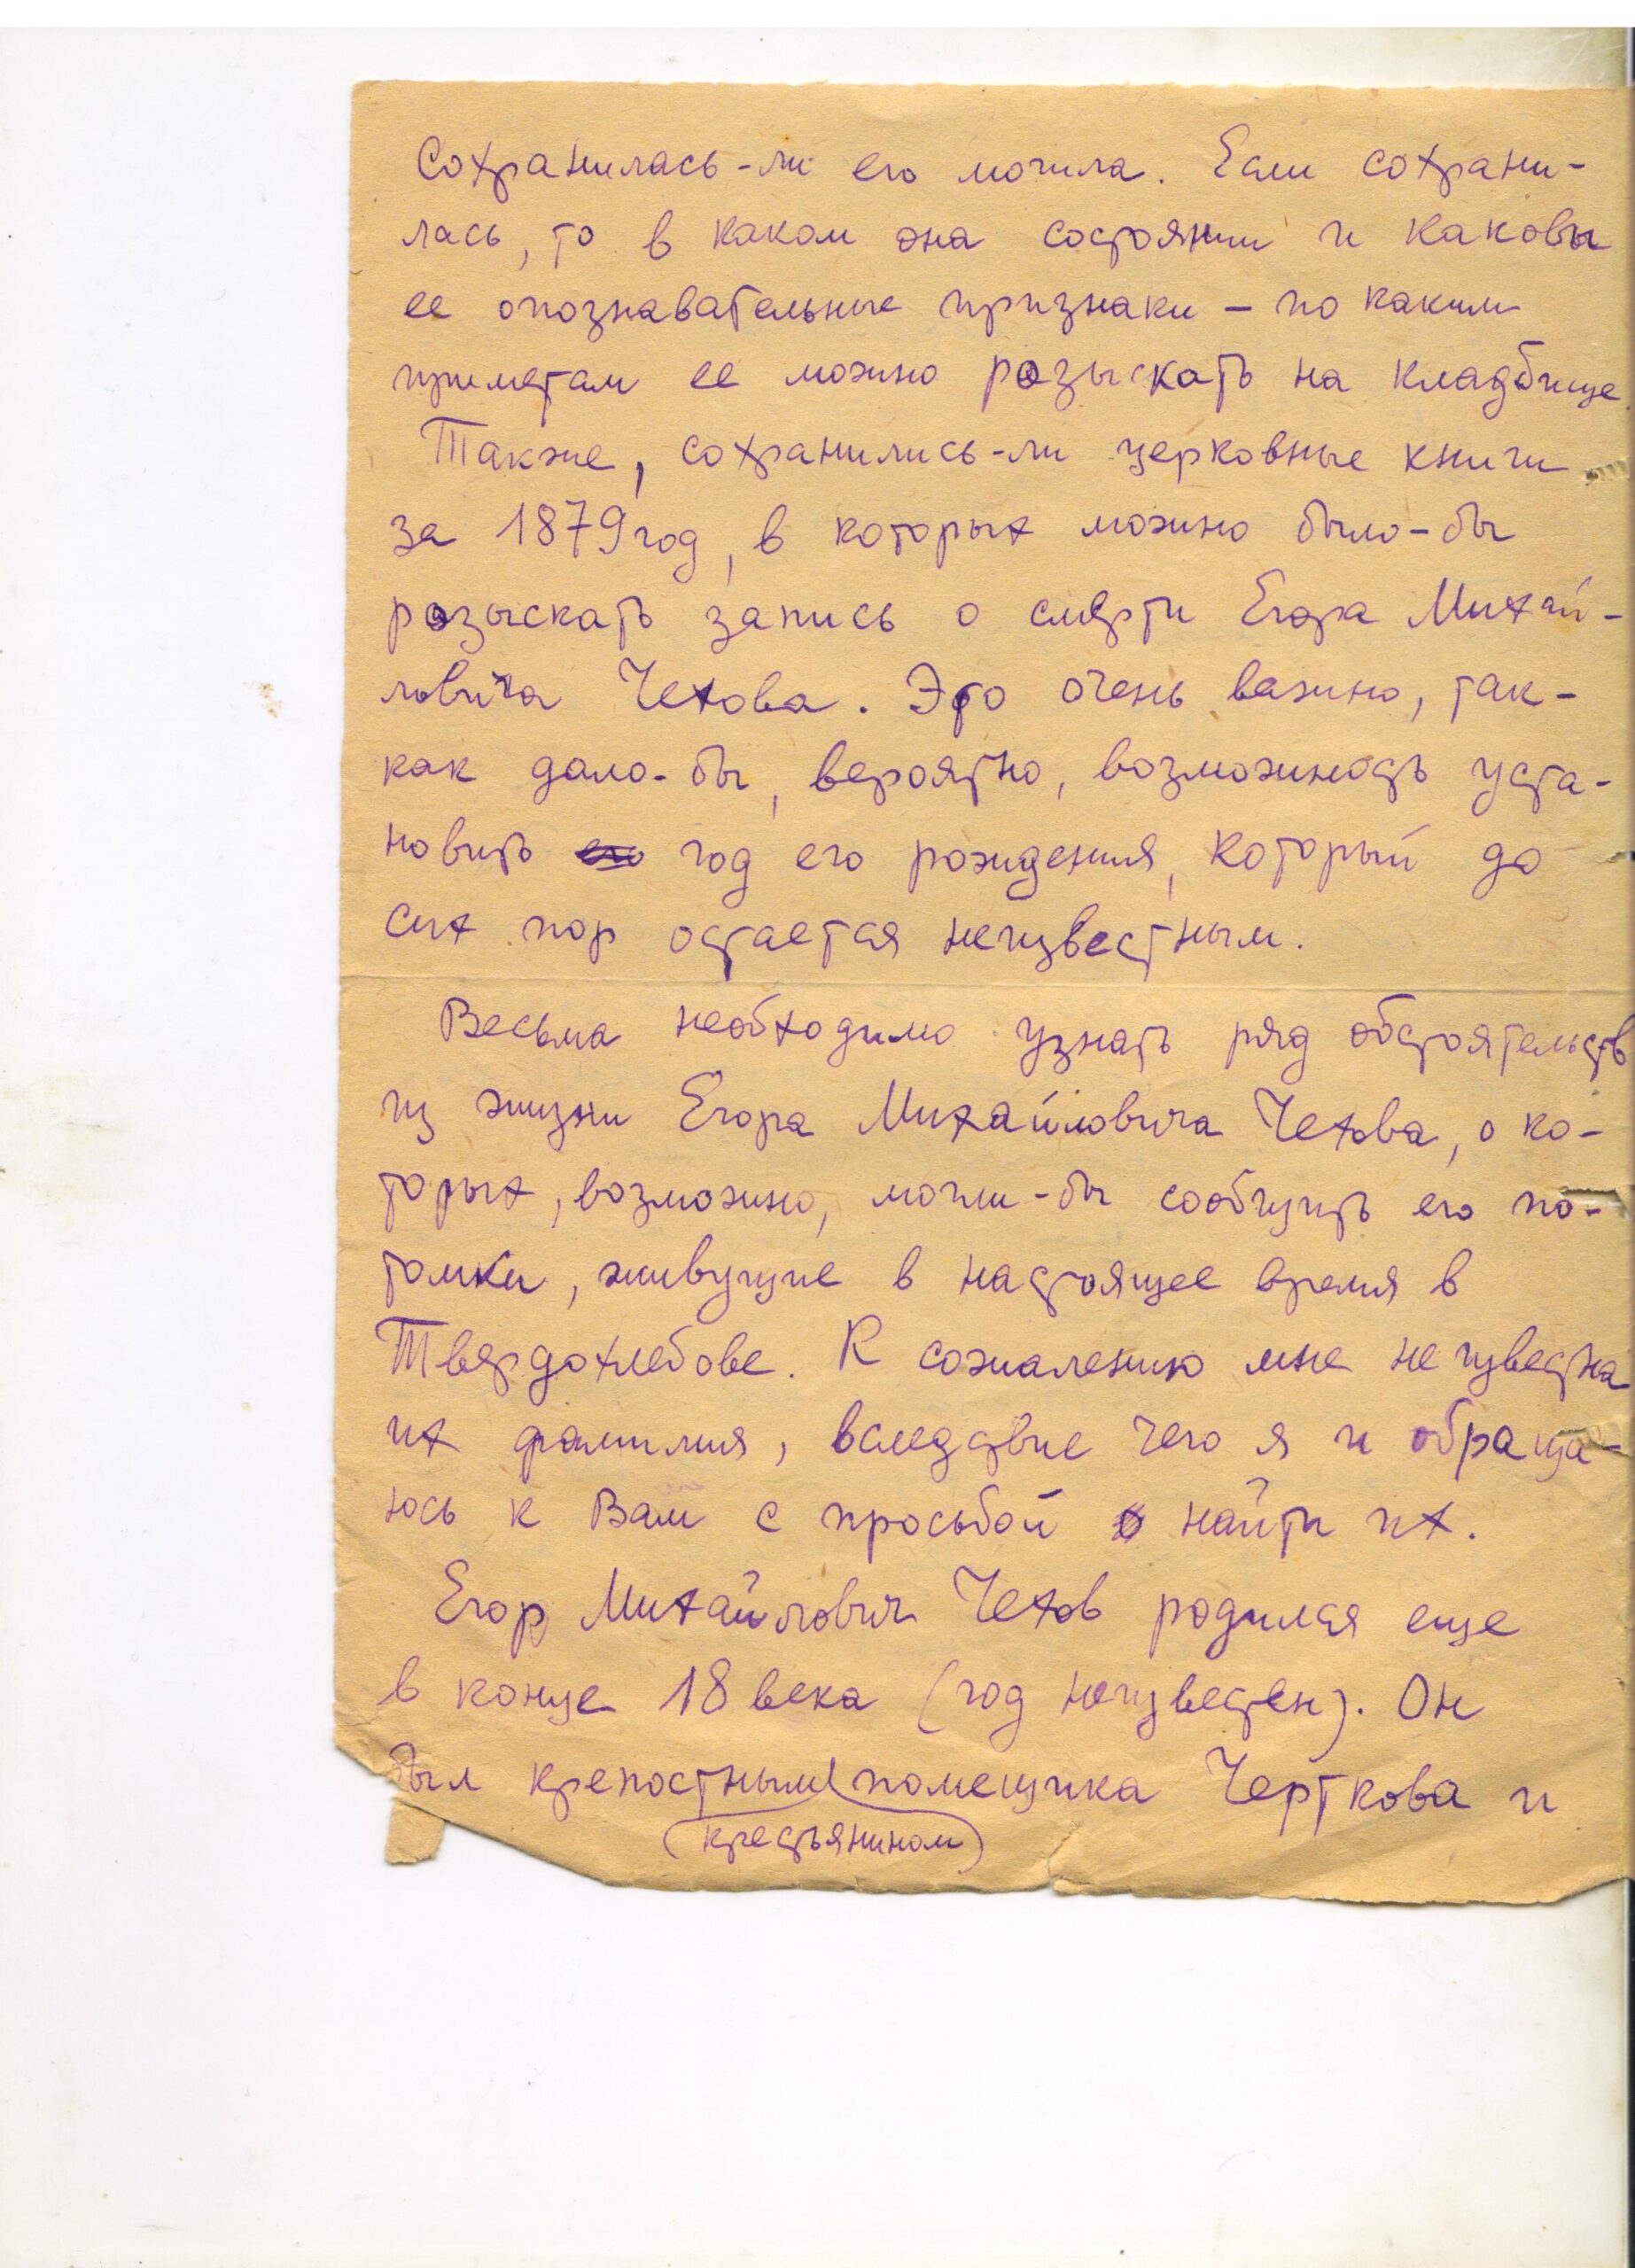 Сохранилась-ли его могила. Если сохрани-
лась, то в каком она состоянии и каковы
ее опознавательные признаки – по каким
приметам ее можно розыскать на кладбище.
Также, сохранились-ли церковные книги
за 1879 год, в которых можно было-бы
розыскать запись о смерти Егора Михай-
ловича Чехова. Это очень важно, так-
как дало-бы, вероятно, возможность уста-
новить его год его рождения, который до
сих пор остается неизвестным.
Весьма необходимо узнать ряд обстоятельств
из жизни Егора Михайловича Чехова, о ко-
торых, возможно, могли-бы сообщить его по-
томки, живущие в настоящее время в
Твердохлебове. К сожалению мне неизвестна
их фамилия, вследствие чего я и обраща-
юсь к Вам с просьбой найти их.
Егор Михайлович Чехов родился еще
в конце 18 века (год неизвестен). Он
был крепостным помещика Черткова и
(крестьянином)